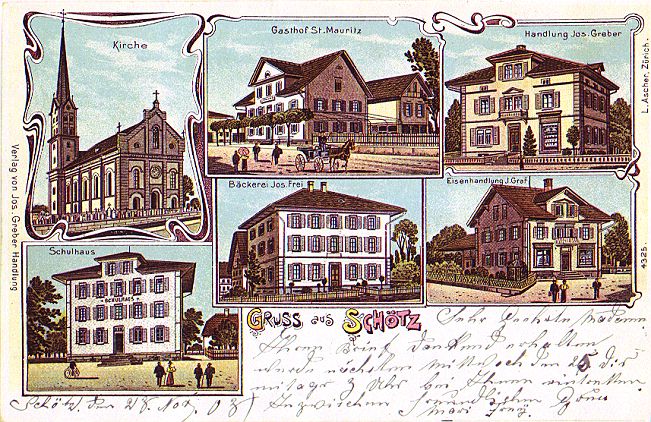 Kirche
Gasthof St. Mauritz
Handlung Jos. Greber
L. Ascher, Zürich.
Verlag von Jos. Greber Handlung
Bäckerei Jos. Frei
Eisenhandlung J. Graf
4325.
Schulhaus
SCHULHAUS
GRUSS aus SCHÖTZ
Sehr Madame
Ihren Brief dankend erhalten
werde nächsten Mittwoch den 25 Dis
mitags 2 Uhr bei Ihnen eintreffen
Schötz den 28 Nov. 03 Inzwischen freundlichen Gruss
Mari Frey